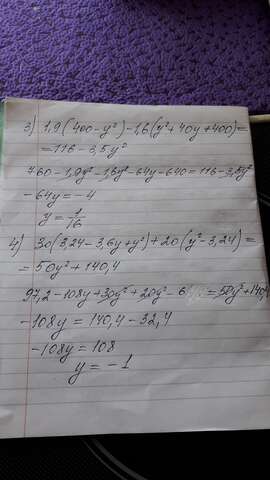 3) 1,9(400-y²)-1,6(y²+40y+400)=
=116-3,5y²
760-1,9y²-1,6y²-64y-640=116-3,5y²
-64y=-4
y=1/16
4) 30(3,24-3,6y+y²)+20(y²-3,24)=
=50y²+140,4
97,2-108y+30y²+20y²-6 =50y²+140,
-108y=140,4-32,4
-108y=108
y=-1